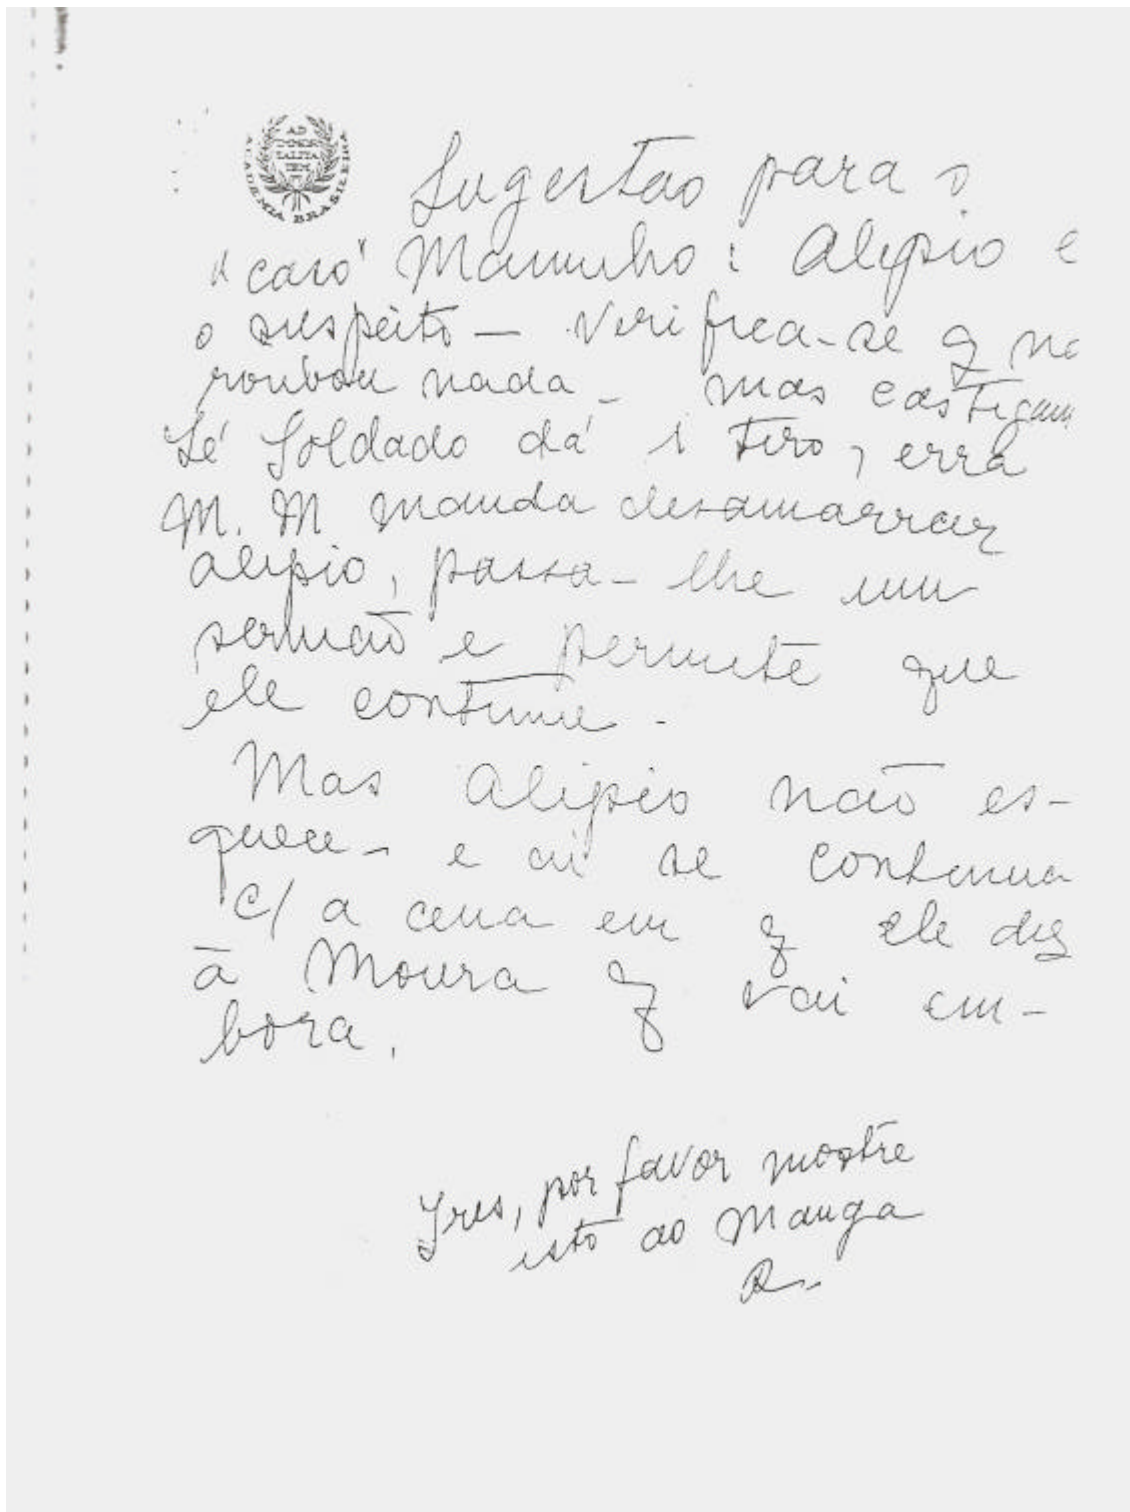 AD
IMMOR
TALITA
TEM
ACADEMIA BRASILEIRA
Sugestão para o
"caso" Marruinho : Alipio e
o suspeito — Verifica-se q nã
roubou nada - mas castigam
Zé Soldado dá 1 tiro, erra
M. M manda desamarrar
alipio, passa-lhe um
sermão e permite que
ele continue.
Mas Alipio não es-
quece - e aí se continua
c/ a cena em q ele diz
à Moura q vai em-
bora.
Yres, por favor mostre
isto ao Manga
R.